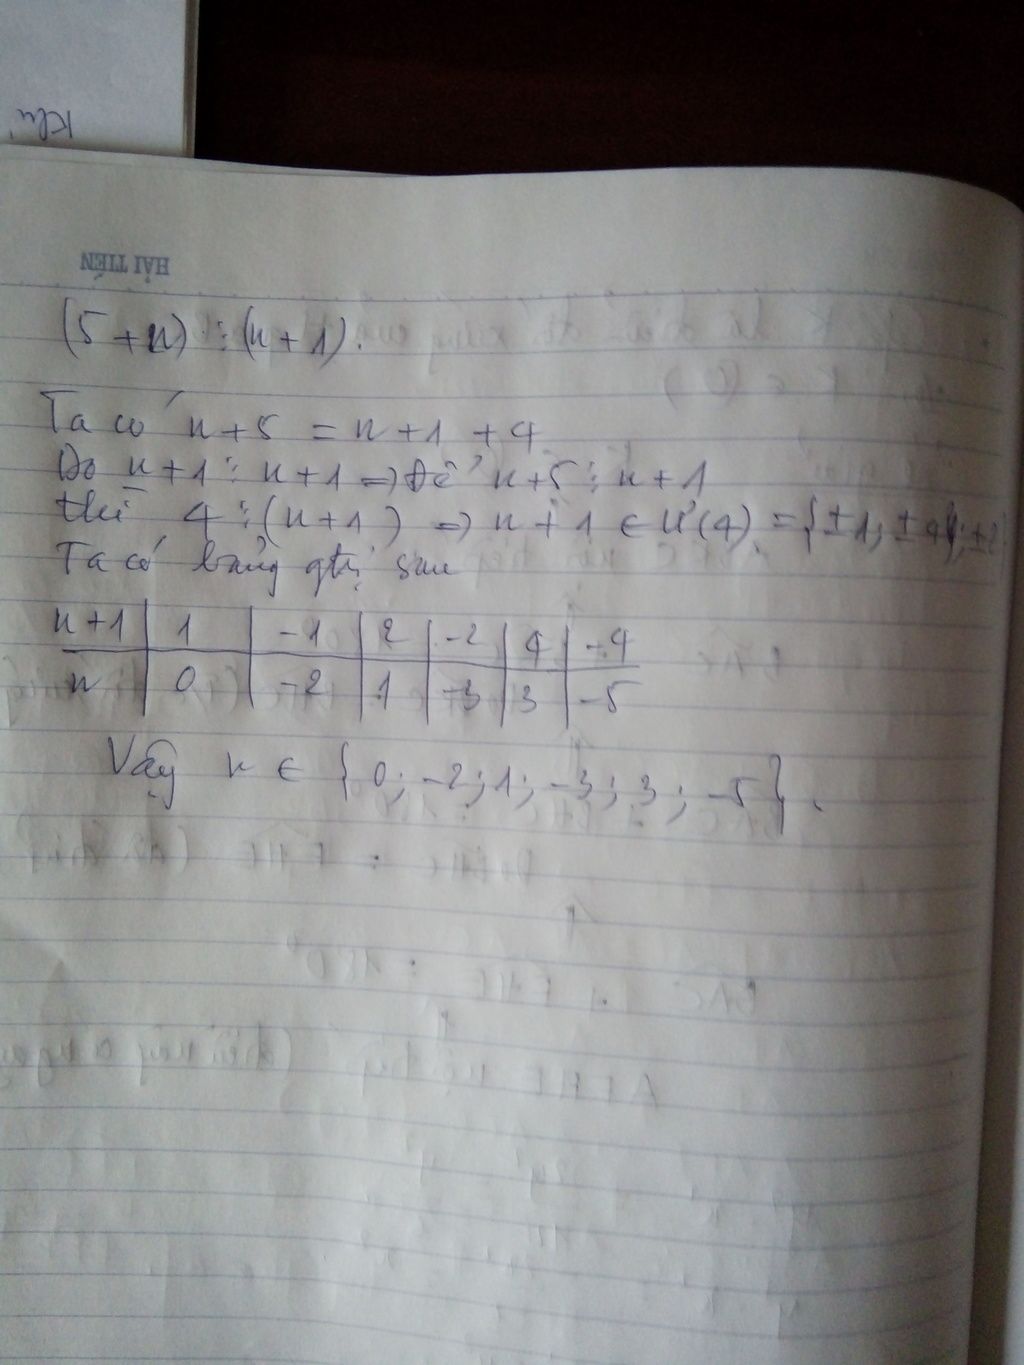 Khu
HẢI TIẾN
(5 + n) ⋮ (n + 1).
Ta có n + 5 = n + 1 + 4
Do n + 1 ⋮ n + 1 => Để n + 5 ⋮ n + 1
thì 4 ⋮ (n + 1) => n + 1 ∈ Ư(4) = {±1; ±4; ±2}
Ta có bảng gtrị sau
n + 1 | 1 | -1 | 2 | -2 | 4 | -4
n | 0 | -2 | 1 | -3 | 3 | -5
Vậy n ∈ {0; -2; 1; -3; 3; -5}.